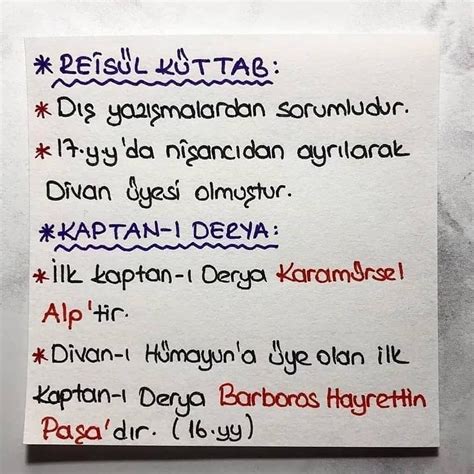 * REİSÜL KÜTTAB:
* Dış yazışmalardan sorumludur.
* 17.yy'da nişancıdan ayrılarak
Divan üyesi olmuştur.
* KAPTAN-I DERYA:
* İlk kaptan-ı Derya Karamürsel
Alp'tir.
* Divan-ı Hümayun'a üye olan ilk
Kaptan-ı Derya Barboros Hayrettin
Paşa'dır. (16.yy)